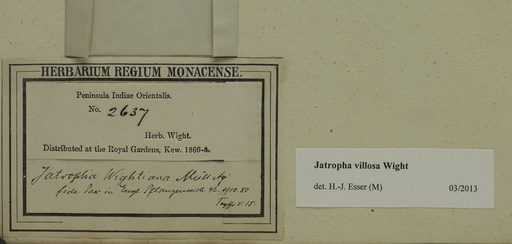 HERBARIUM REGIUM MONACENSE.
Peninsula Indiae Orientalis.
No. 2637
Herb. Wight.
Distributed at the Royal Gardens, Kew. 1866-8.
Jatropha Wightiana Müll. Arg.
fide Pax in
Jatropha villosa Wight
det. H.-J. Esser (M) 03/2013